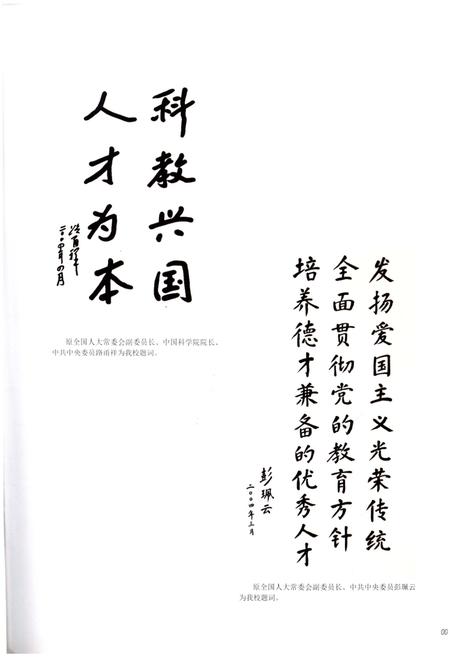 科教兴国
人才为本
路甬祥
二〇〇四年四月
原全国人大常委会副委员长、中国科学院院长、
中共中央委员路甬祥为我校题词。
发扬爱国主义光荣传统
全面贯彻党的教育方针
培养德才兼备的优秀人才
彭珮云
二〇〇四年三月
原全国人大常委会副委员长、中共中央委员彭珮云
为我校题词。